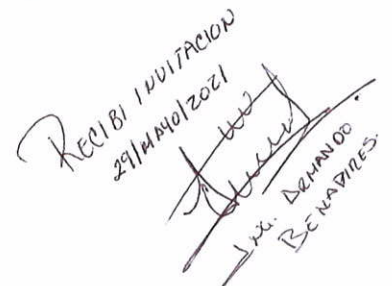 RECIBI INVITACION
29/MAYO/2021
ING. ARMANDO
BENADIRES.